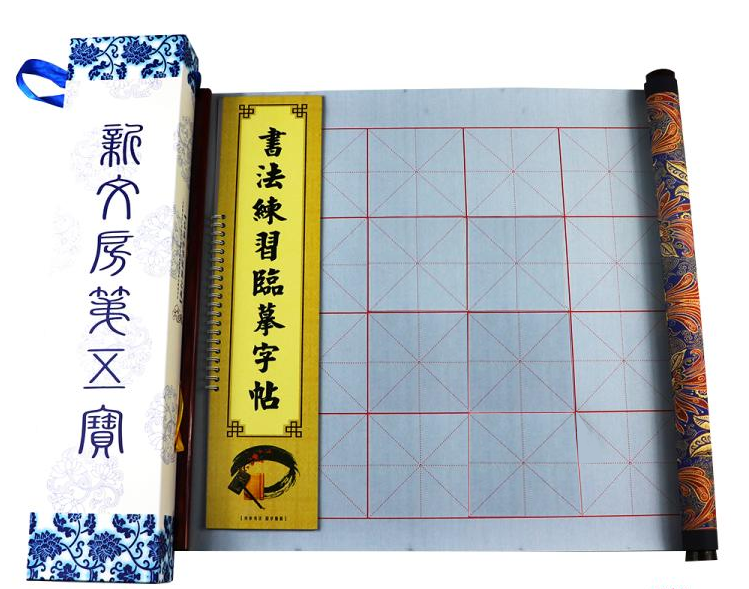 新文房第五寶
書法練習臨摹字帖